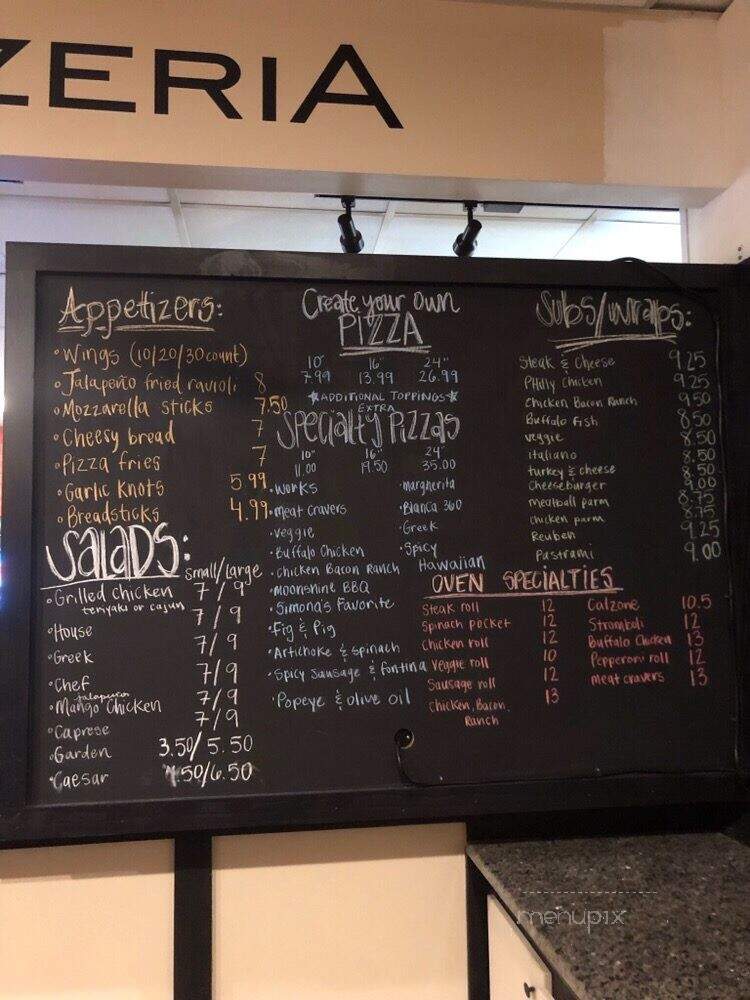 ZERIA
Appetizers:
• Wings (10/20/30count)
• Jalapeño fried ravioli 8
• Mozzarella sticks 7.50
• Cheesy bread 7
• Pizza fries 7
• Garlic Knots 5.99
• Breadsticks 4.99
Salads:
Small/Large
• Grilled Chicken 7/9
teriyaki or cajun
• House 7/9
• Greek 7/9
• Chef 7/9
jalapeno
• Mango Chicken 7/9
• Caprese 7/9
• Garden 3.50/5.50
• Caesar 4.50/6.50
Create your Own
PIZZA
10" 16" 24"
7.99 13.99 26.99
★ADDITIONAL TOPPINGS★
EXTRA
Specialty Pizzas
10" 16" 24"
11.00 19.50 35.00
• Works
• Meat Cravers
• Veggie
• Buffalo Chicken
• Chicken Bacon Ranch
• Moonshine BBQ
• Simona's Favorite
• Fig & Pig
• Artichoke & spinach
• Spicy Sausage & fontina
• Popeye & olive oil
• Margherita
• Bianca 360
• Greek
• Spicy
Hawaiian
Subs/Wraps:
Steak & Cheese 9.25
Philly Chicken 9.25
Chicken Bacon Ranch 9.50
Buffalo Fish 8.50
Veggie 8.50
italiano 8.50
turkey & cheese 8.50
Cheeseburger 9.00
meatball parm 8.75
chicken parm 8.75
Reuben 9.25
Pastrami 9.00
OVEN SPECIALTIES
Steak roll 12
Spinach pocket 12
Chicken roll 12
Veggie roll 10
Sausage roll 12
Chicken, Bacon, 13
Ranch
Calzone 10.5
Stromboli 12
Buffalo Chicken 13
Pepperoni roll 12
Meat Cravers 13
menupix